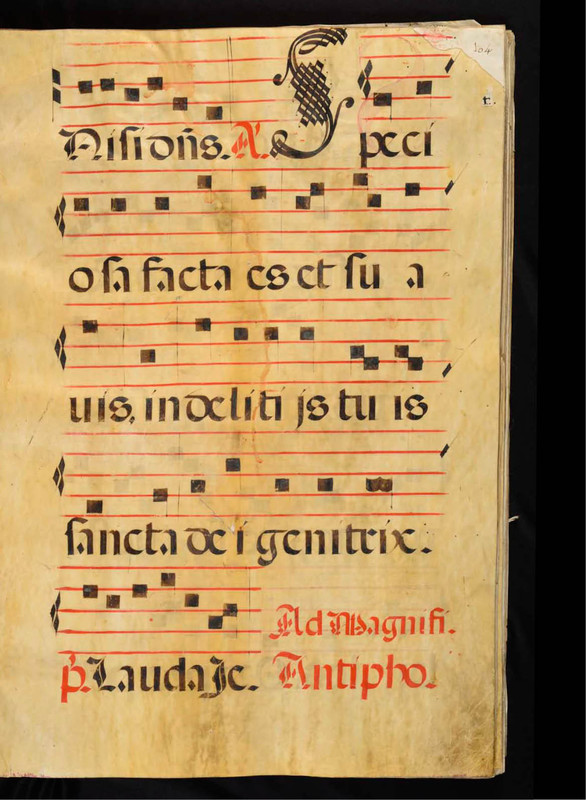 104
Nisi dñs. A. Speci
t.
osa facta es et su a
uis, in deliti js tu is
sancta de i genitrix.
Ad Magnifi.
p̃. Lauda Je. Antipho.